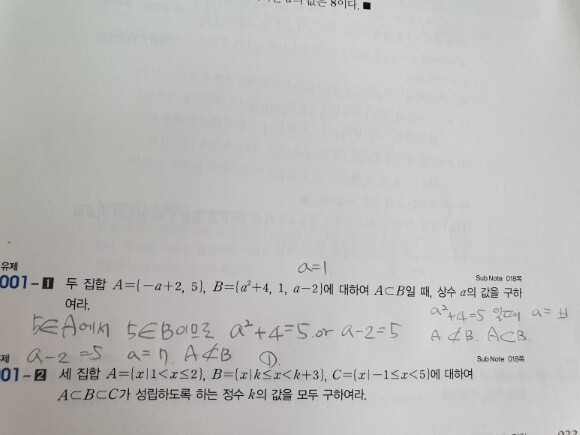 값은 8이다. ■
a=1
유제
001-1 두 집합 A={-a+2, 5}, B={a²+4, 1, a-2}에 대하여 A⊂B일 때, 상수 a의 값을 구하
여라.
Sub Note 018쪽
5∈A에서 5∈B이므로 a²+4=5 or a-2=5
a²+4=5 일때 a=±1
a-2=5 a=7. A⊄B ①.
A⊄B. A⊂B.
제
01-2 세 집합 A={x|1<x≤2}, B={x|k≤x<k+3}, C={x|-1≤x<5}에 대하여
A⊂B⊂C가 성립하도록 하는 정수 k의 값을 모두 구하여라.
Sub Note 018쪽